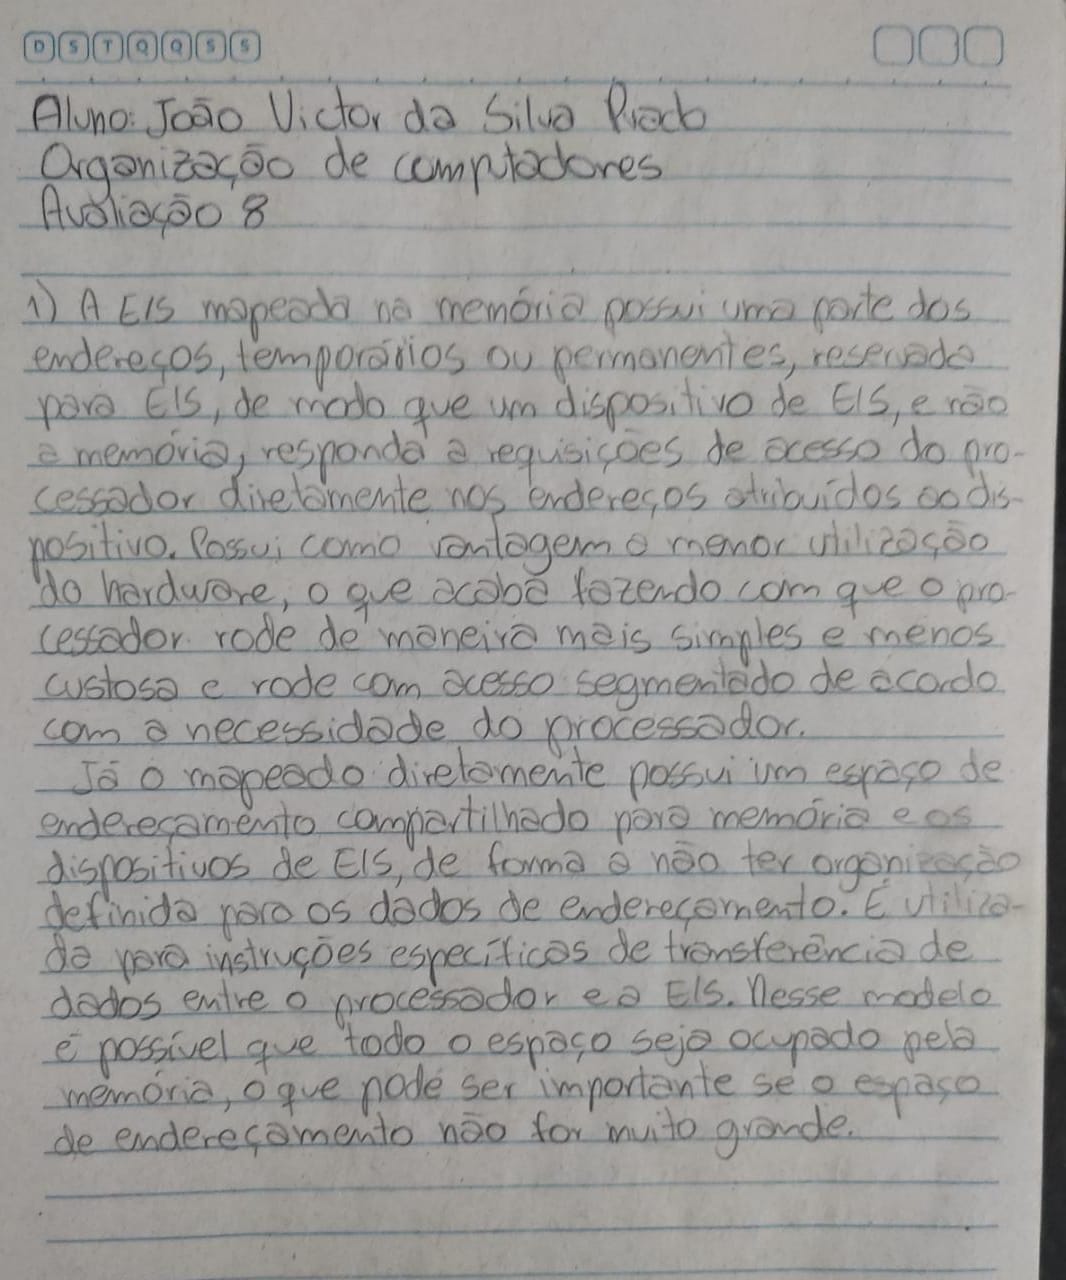 D S T Q Q S S
Aluno: João Victor da Silva Prado
Organização de computadores
Avaliação 8
1) A E/S mapeada na memória possui uma parte dos
endereços, temporários ou permanentes, reservada
para E/S, de modo que um dispositivo de E/S, e não
a memória, responda a requisições de acesso do pro-
cessador diretamente nos endereços atribuídos ao dis-
positivo. Possui como vantagem a menor utilização
do hardware, o que acaba fazendo com que o pro-
cessador rode de maneira mais simples e menos
custosa e rode com acesso segmentado de acordo
com a necessidade do processador.
Já o mapeado diretamente possui um espaço de
endereçamento compartilhado para memória e os
dispositivos de E/S, de forma a não ter organização
definida para os dados de endereçamento. É utiliza-
da para instruções específicas de transferência de
dados entre o processador e a E/S. Nesse modelo
é possível que todo o espaço seja ocupado pela
memória, o que pode ser importante se o espaço
de endereçamento não for muito grande.